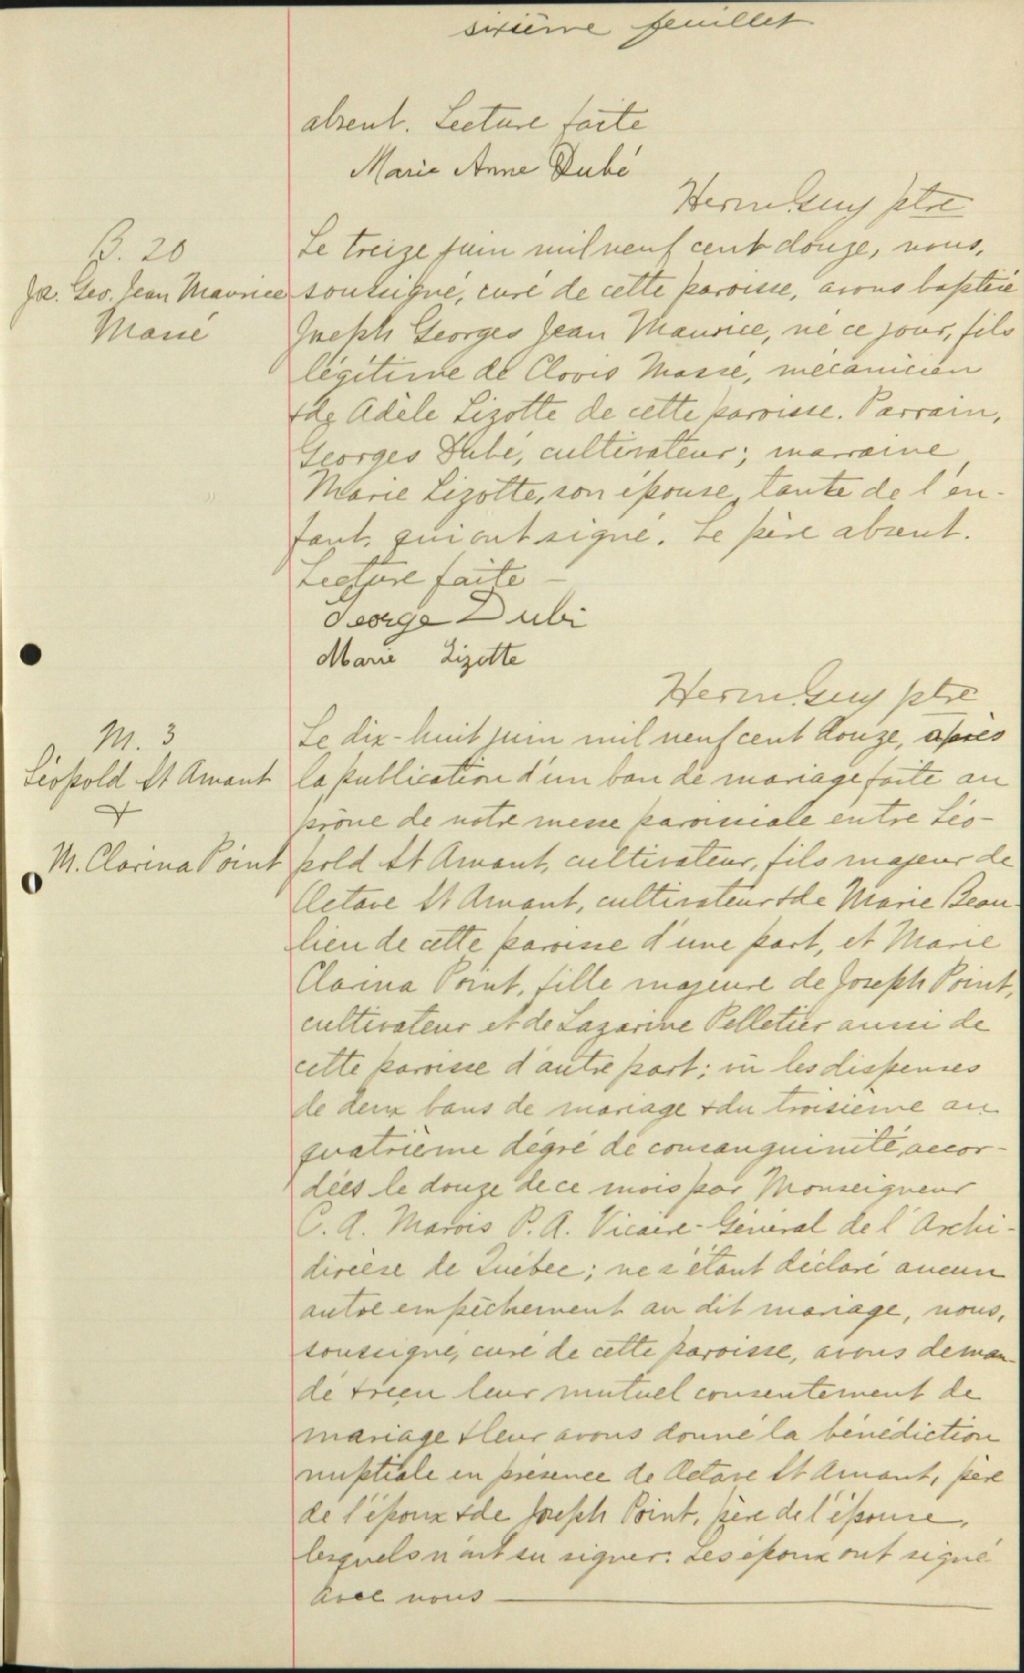 sixième feuillet
absent. Lecture faite
Marie Anne Dubé
Herm. Guy ptre
B. 20
Js. Geo. Jean Maurice
Massé
Le treize juin mil neuf cent douze, nous,
soussigné, curé de cette paroisse, avons baptisé
Joseph Georges Jean Maurice, né ce jour, fils
légitime de Clovis Massé, mécanicien
& de Adèle Lizotte de cette paroisse. Parrain,
Georges Dubé, cultivateur; marraine,
Marie Lizotte, son épouse, tante de l'en-
fant, qui ont signé. Le père absent.
Lecture faite —
George Dubé
Marie Lizotte
Herm. Guy ptre
M. 3
Léopold St Amant
&
M. Clarina Point
Le dix-huit juin mil neuf cent douze, après
la publication d'un ban de mariage faite au
prône de notre messe paroissiale entre Léo-
pold St Amant, cultivateur, fils majeur de
Octave St Amant, cultivateur & de Marie Beau-
lieu de cette paroisse d'une part, et Marie
Clarina Point, fille majeure de Joseph Point,
cultivateur et de Lazarine Pelletier aussi de
cette paroisse d'autre part; vu les dispenses
de deux bans de mariage & du troisième au
quatrième dégré de consanguinité, accor-
dées le douze de ce mois par Monseigneur
C. A. Marois P. A. Vicaire-Général de l'Archi-
diocèse de Québec; ne s'étant déclaré aucun
autre empêchement au dit mariage, nous,
soussigné, curé de cette paroisse, avons deman-
dé & reçu leur mutuel consentement de
mariage & leur avons donné la bénédiction
nuptiale en présence de Octave St Amant, père
de l'époux & de Joseph Point, père de l'épouse,
lesquels n'ont su signer. Les époux ont signé
avec nous —